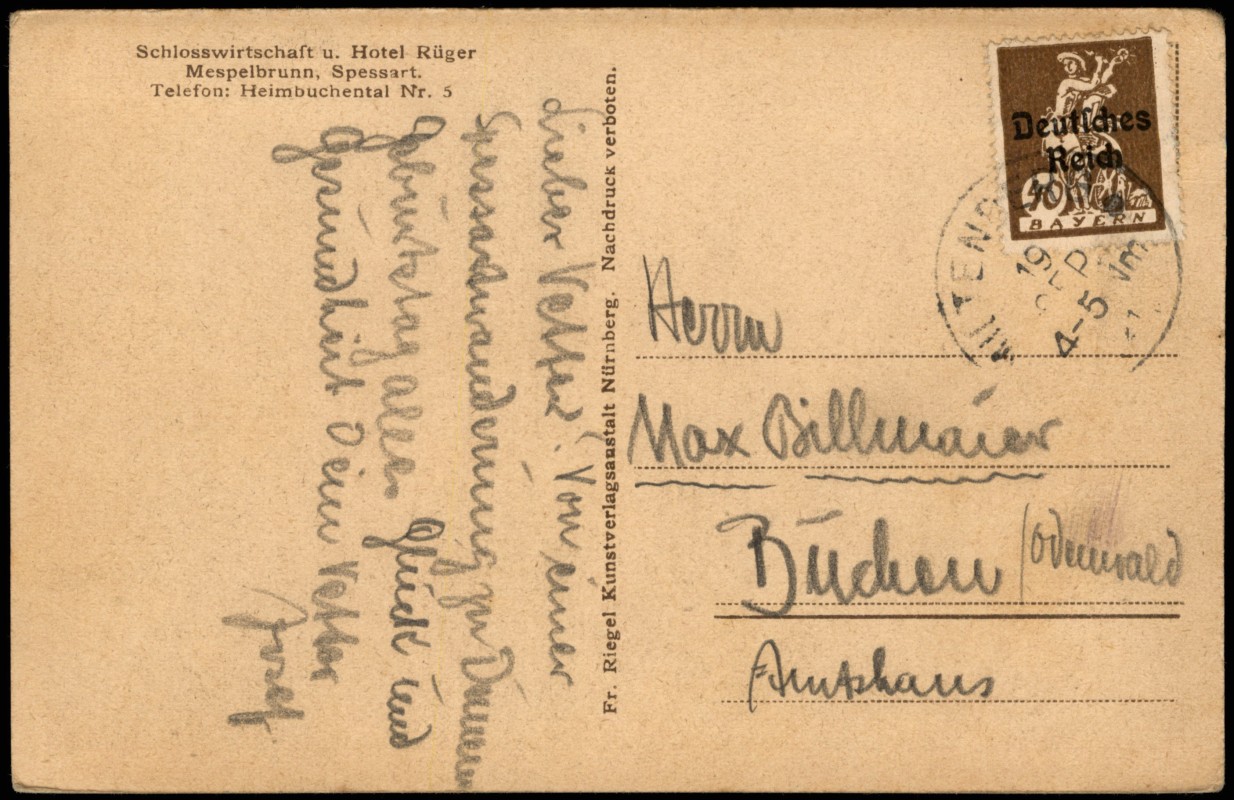 Schlosswirtschaft u. Hotel Rüger
Mespelbrunn, Spessart.
Telefon: Heimbuchental Nr. 5
Lieber Vetter! Von einer
Spessartwanderung zu Deinem
Geburtstag alles Glück und
Gesundheit Dein Vetter
Josef
Fr. Riegel Kunstverlagsanstalt Nürnberg. Nachdruck verboten.
Deutsches
Reich
40
BAYERN
MILTENB
19
SEP
4-5 Nm
Herrn
Max Billmaier
Buchen (Odenwald
Amtshaus